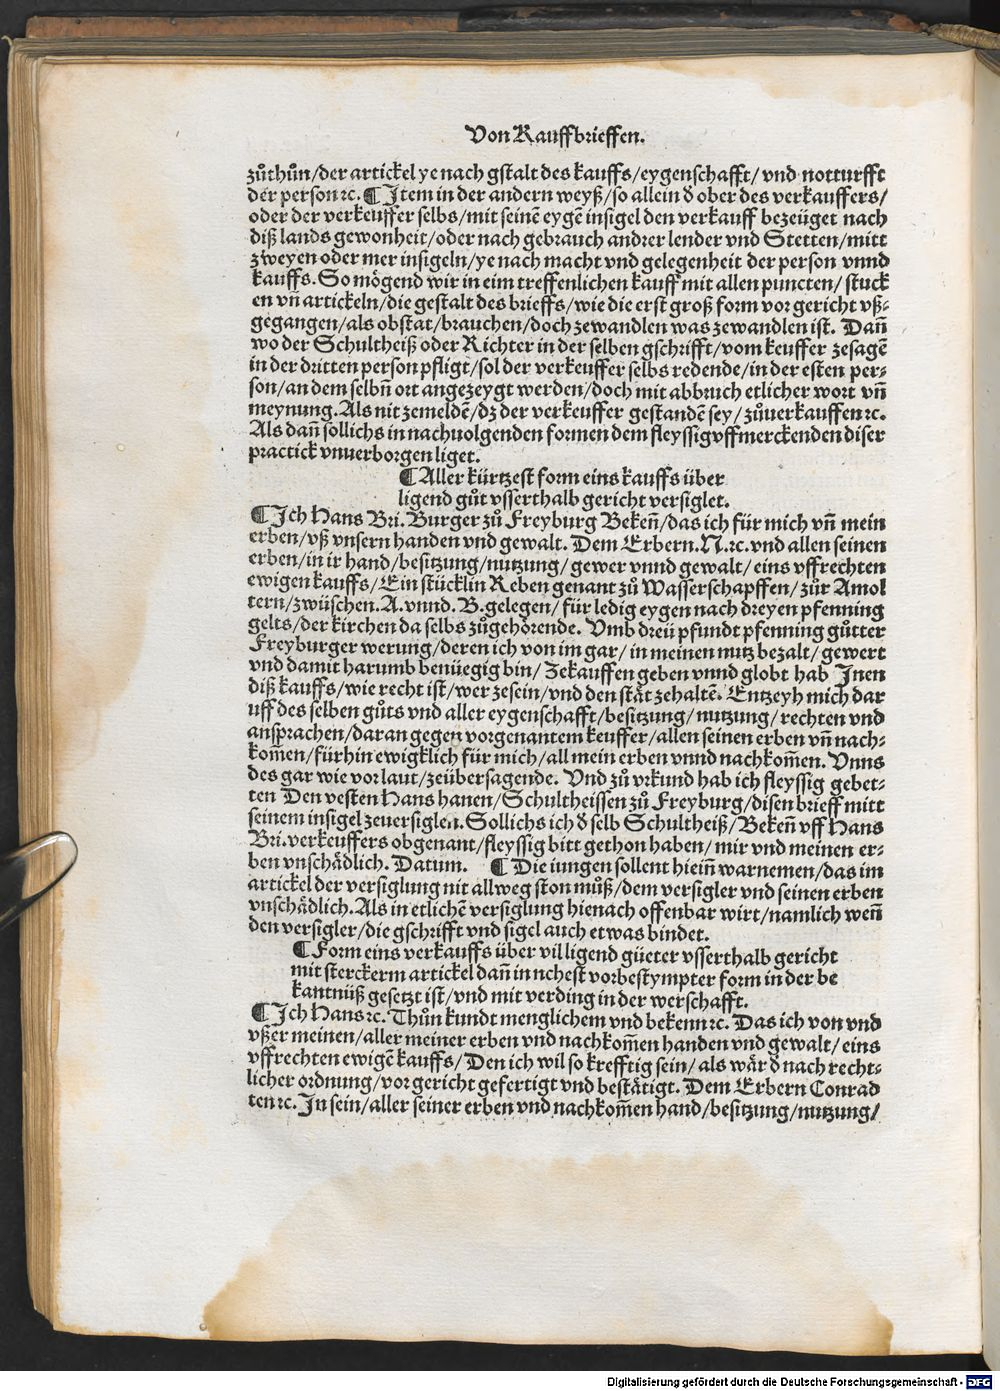 Von Kauffbrieffen.
zůthůn/der artickel ye nach gstalt des kauffs/eygenschafft/ vnd notturfft
der person ⁊c. ¶ Item in der andern weyß/so allein d̄ ober des verkauffers/
oder der verkeuffer selbs/mit seinē eygē insigel den verkauff bezeüget nach
diß lands gewonheit/oder nach gebrauch andrer lender vnd Stetten/mitt
zweyen oder mer insigeln/ye nach macht vnd gelegenheit der person vnnd
kauffs. So mögend wir in eim treffenlichen kauff mit allen puncten/ stuck
en vn̄ artickeln/die gestalt des brieffs/wie die erst groß form vor gericht vß⸗
gegangen/als obstat/brauchen/doch zewandlen was zewandlen ist. Dan̄
wo der Schultheiß oder Richter in der selben gschrifft/vom keuffer zesagē
in der dritten person pfligt/sol der verkeuffer selbs redende/in der esten per⸗
son/an dem selbn̄ ort angezeygt werden/doch mit abbruch etlicher wort vn̄
meynung. Als nit zemeldē/dz der verkeuffer gestandē sey/zůuerkauffen ⁊c.
Als dan̄ sollichs in nachuolgenden formen dem fleyssig vffmerckenden diser
practick vnuerborgen liget.
¶ Aller kürtzest form eins kauffs über
ligend gůt vsserthalb gericht versiglet.
¶ Ich Hans Bri. Burger zů Freyburg Beken̄/das ich für mich vn̄ mein
erben/vß vnsern handen vnd gewalt. Dem Erbern. N. ⁊c. vnd allen seinen
erben/in ir hand/besitzung/nutzung/ gewer vnnd gewalt/ eins vffrechten
ewigen kauffs/ Ein stücklin Reben genant zů Wasserschapffen/ zůr Amol
tern/zwüschen. A. vnnd. B. gelegen/ für ledig eygen nach dreyen pfenning
gelts/der kirchen da selbs zůgehörende. Vmb dreü pfundt pfenning gůtter
Freyburger werung/deren ich von im gar/ in meinen nutz bezalt/ gewert
vnd damit harumb benüegig bin/ Zekauffen geben vnnd globt hab Inen
diß kauffs/wie recht ist/wer zesein/vnd den stät zehaltē. Entzeyh mich dar
uff des selben gůts vnd aller eygenschafft/besitzung/ nutzung/ rechten vnd
ansprachen/daran gegen vorgenantem keuffer/allen seinen erben vn̄ nach⸗
kom̄en/fürhin ewigklich für mich/all mein erben vnnd nachkom̄en. Vnns
des gar wie vor laut/zeübersagende. Vnd zů vrkund hab ich fleyssig gebet⸗
ten Den vesten Hans hanen/Schultheissen zů Freyburg/disen brieff mitt
seinem insigel zeuersiglen. Sollichs ich d̄ selb Schultheiß/Beken̄ vff Hans
Bri. verkeuffers obgenant/fleyssig bitt gethon haben/ mir vnd meinen er⸗
ben vnschädlich. Datum. ¶ Die iungen sollent hiein̄ warnemen/das im
artickel der versiglung nit allweg ston můß/dem versigler vnd seinen erben
vnschädlich. Als in etlichē versiglung hienach offenbar wirt/namlich wen̄
den versigler/die gschrifft vnd sigel auch etwas bindet.
¶ Form eins verkauffs über vil ligend güeter vsserthalb gericht
mit sterckerm artickel dan̄ in nchest vorbestympter form in der be
kantnüß gesetzt ist/vnd mit verding in der werschafft.
¶ Ich Hans ⁊c. Thůn kundt menglichem vnd bekenn ⁊c. Das ich von vnd
vßer meinen/aller meiner erben vnd nachkom̄en handen vnd gewalt/eins
vffrechten ewigē kauffs/ Den ich wil so krefftig sein/ als wär d̄ nach recht⸗
licher ordnung/vor gericht gefertigt vnd bestätigt. Dem Erbern Conrad
ten ⁊c. In sein/aller seiner erben vnd nachkom̄en hand/besitzung/nutzung/
Digitalisierung gefördert durch die Deutsche Forschungsgemeinschaft - DFG